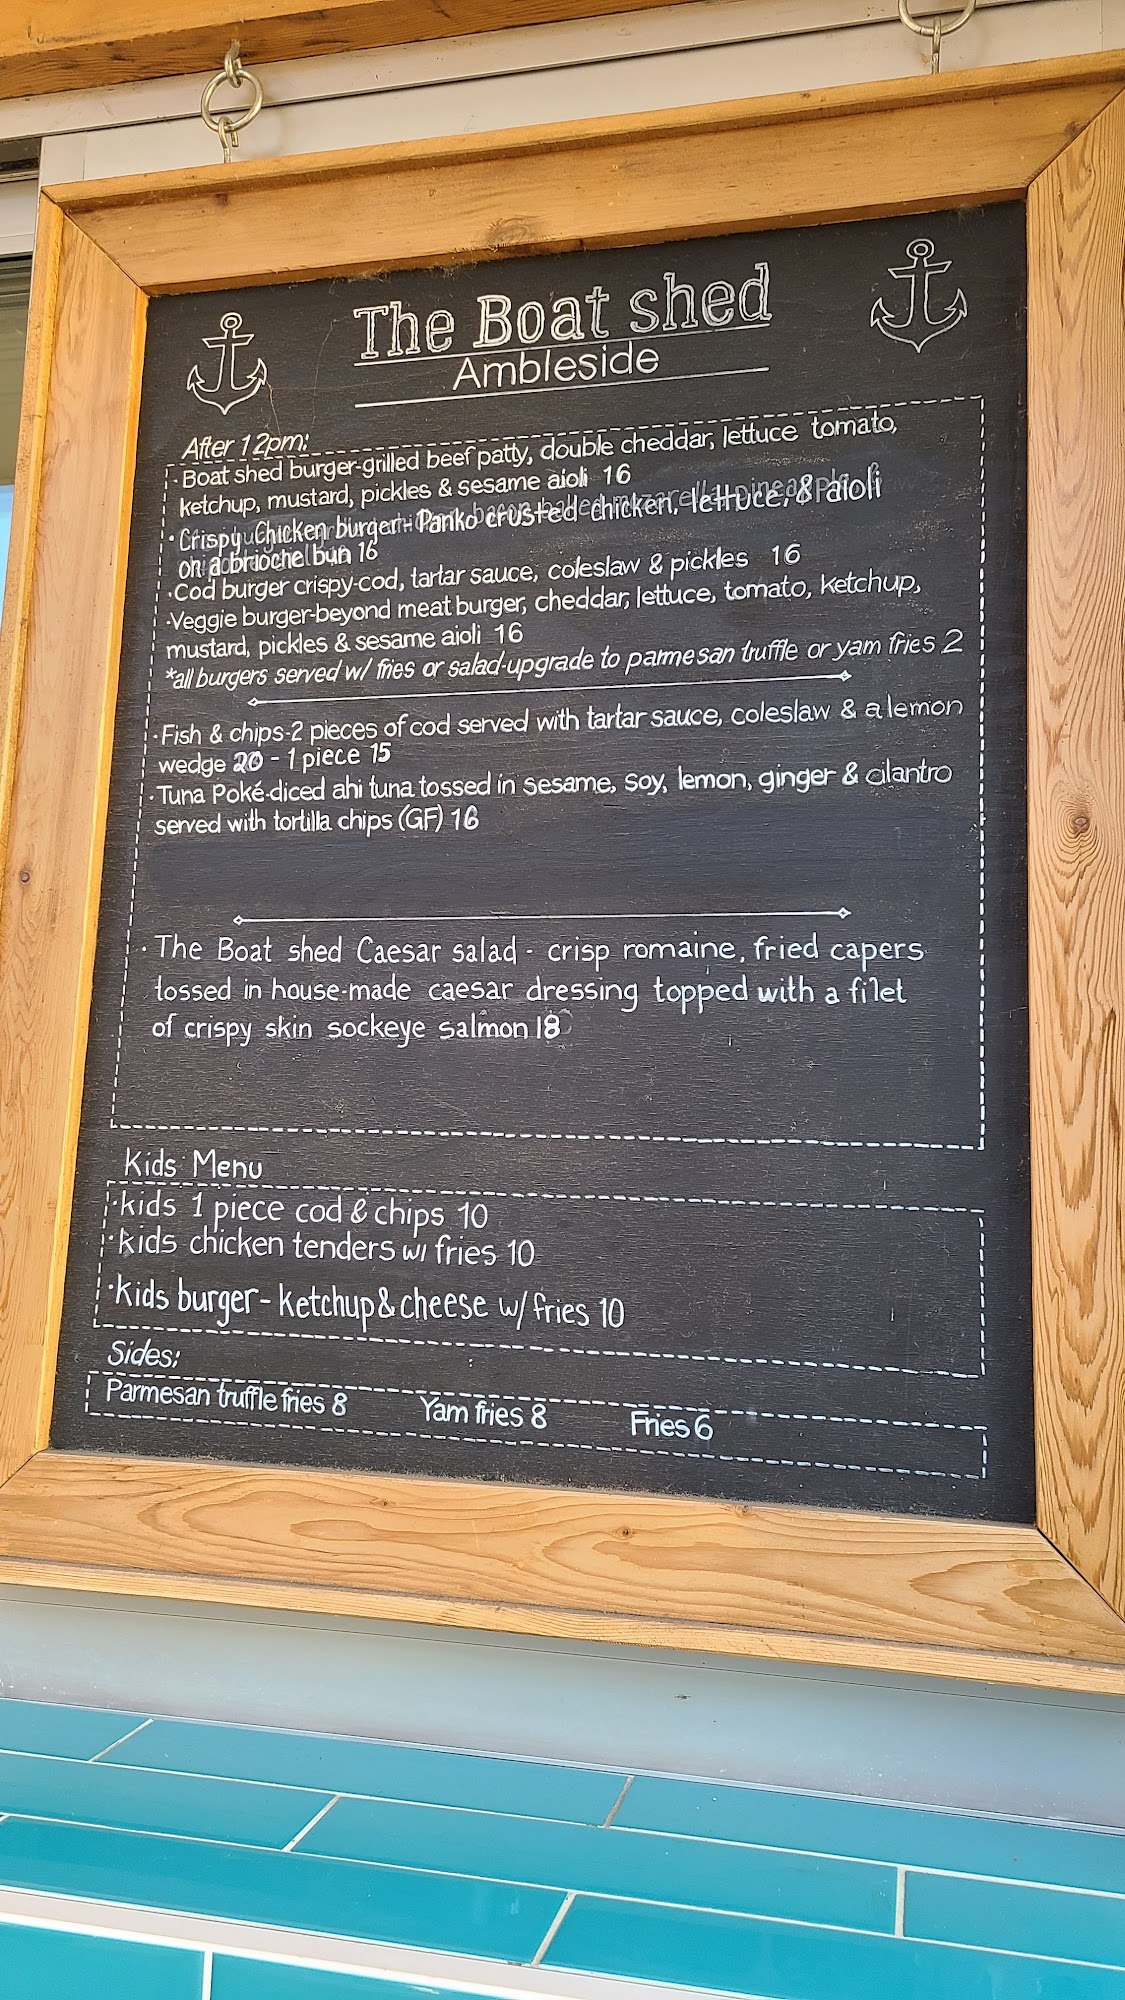 The Boat shed
Ambleside
After 12pm:
· Boat shed burger-grilled beef patty, double cheddar, lettuce tomato,
ketchup, mustard, pickles & sesame aioli 16
· Crispy Chicken burger - Panko crusted chicken, lettuce, & aioli
on a brioche bun 16
·Cod burger crispy-cod, tartar sauce, coleslaw & pickles 16
·Veggie burger-beyond meat burger, cheddar, lettuce, tomato, ketchup,
mustard, pickles & sesame aioli 16
*all burgers served w/ fries or salad-upgrade to parmesan truffle or yam fries 2
·Fish & chips-2 pieces of cod served with tartar sauce, coleslaw & a lemon
wedge 20 - 1 piece 15
·Tuna Poké-diced ahi tuna tossed in sesame, soy, lemon, ginger & cilantro
served with tortilla chips (GF) 16
· The Boat shed Caesar salad - crisp romaine, fried capers
tossed in house-made caesar dressing topped with a filet
of crispy skin sockeye salmon 18
Kids Menu
·kids 1 piece cod & chips 10
·kids chicken tenders w/ fries 10
·kids burger - ketchup & cheese w/ fries 10
Sides:
Parmesan truffle fries 8 Yam fries 8 Fries 6